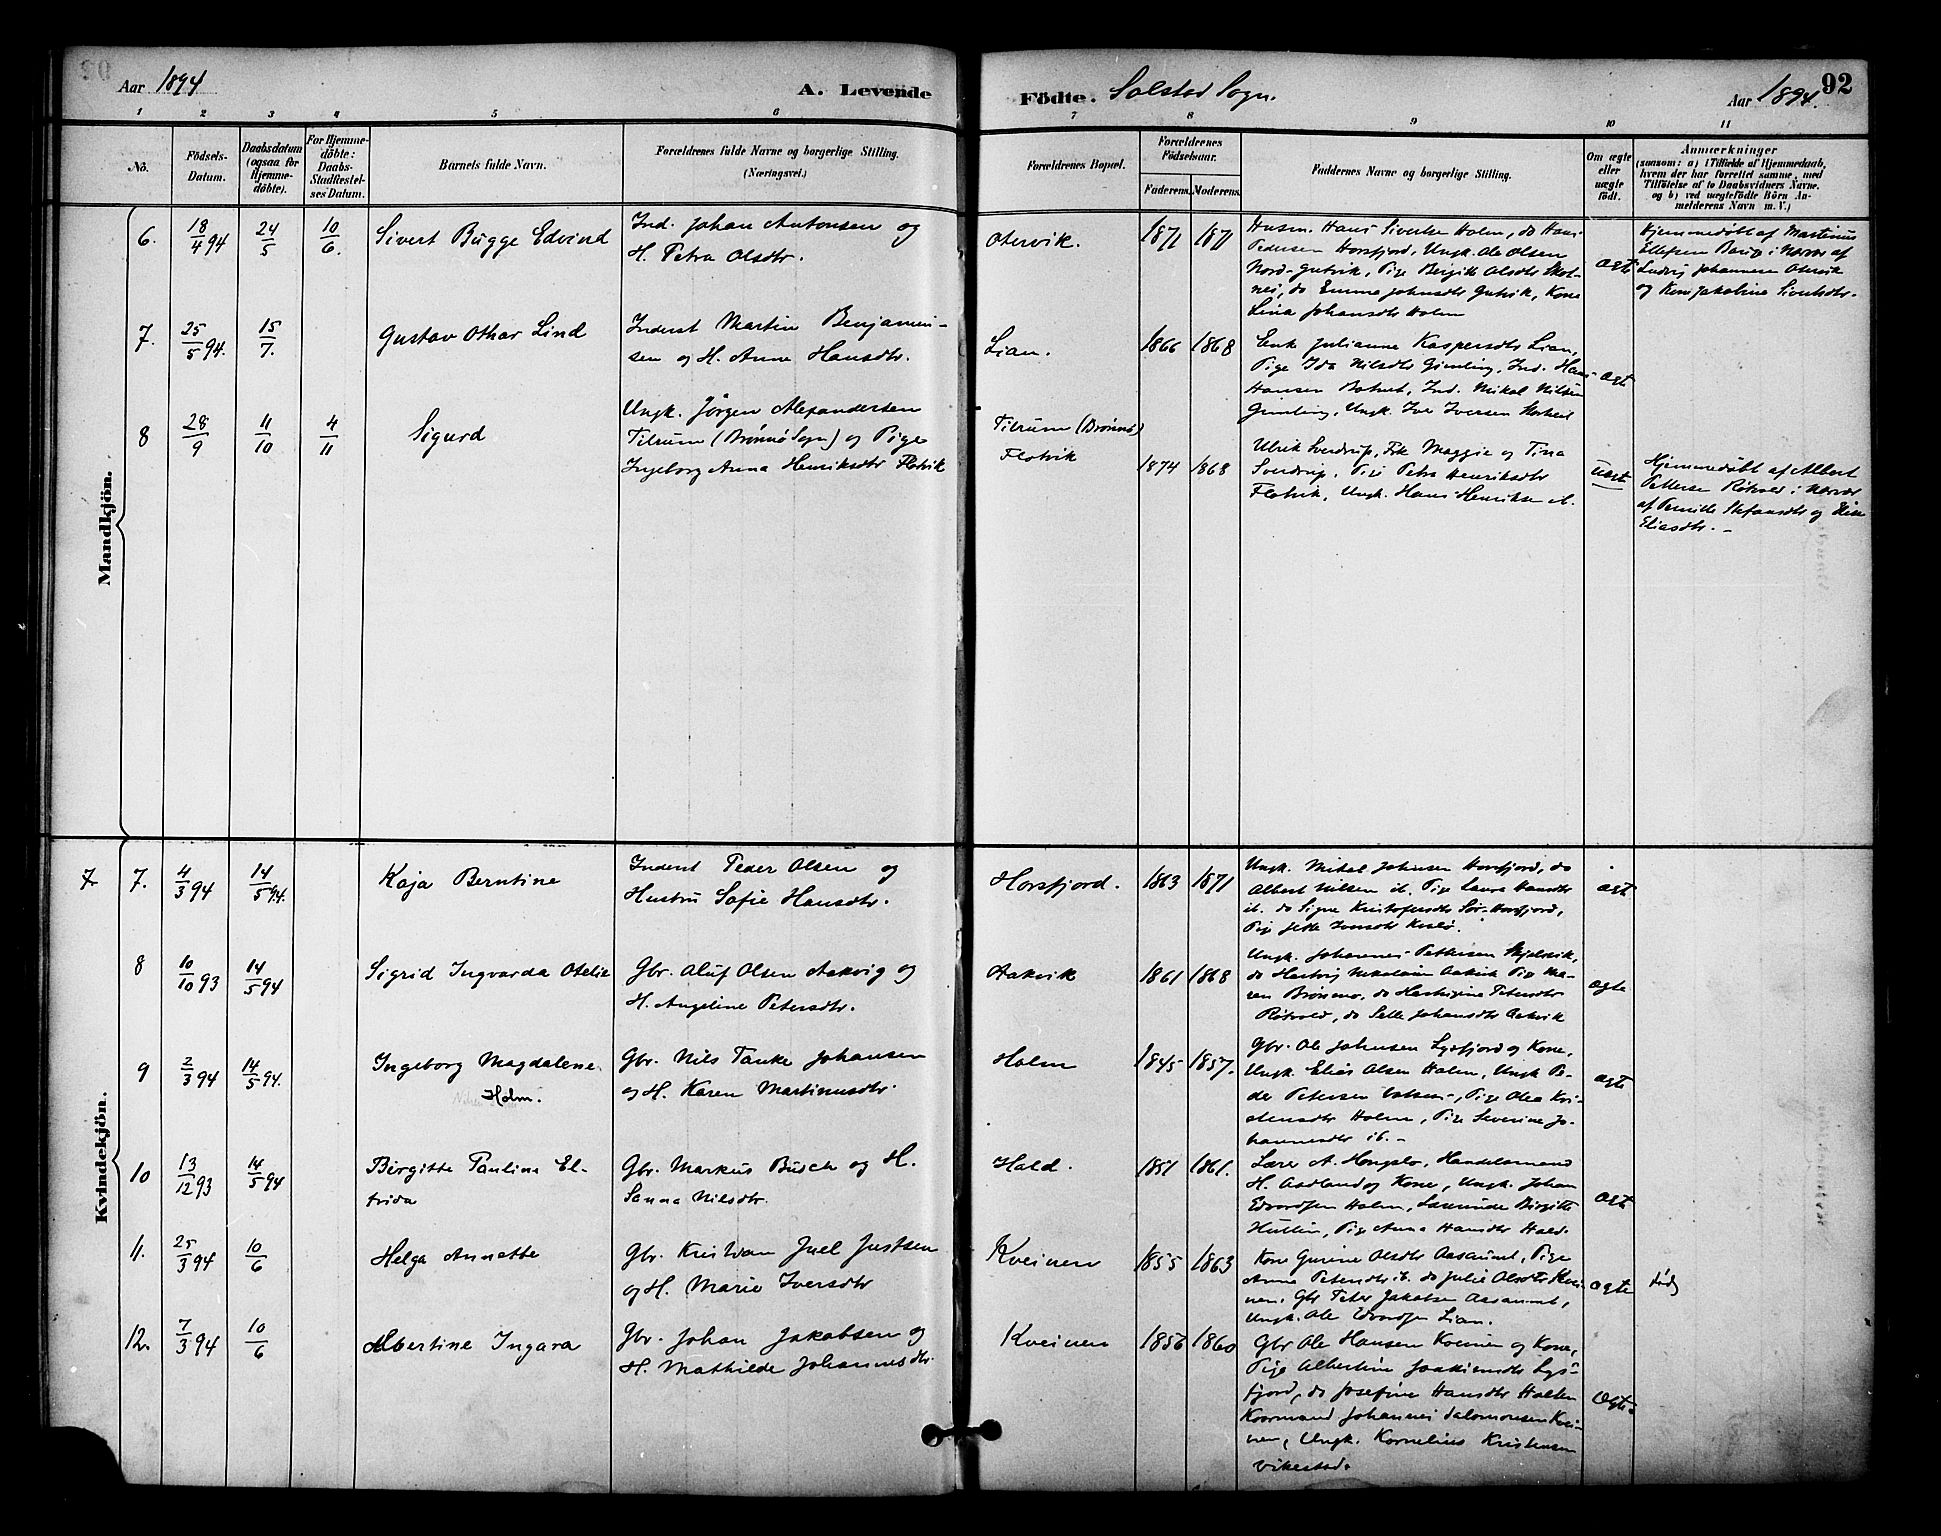 Aar 1894
A. Levende
Födte. Solstad Sogn.
Aar 1894.
92
1 2 3 4 5 6 7 8 9 10 11
No.
Födsels-Datum.
Daabsdatum (ogsaa for Hjemme-döbte).
For Hjemme-döbte: Daabs-Stadfæstel-ses Datum.
Barnets fulde Navn.
Forældrenes fulde Navne og borgerlige Stilling. (Næringsvei.)
Forældrenes Bopæl.
Forældrenes Födselsaar.
Faderens. Moderens.
Faddernes Navne og borgerlige Stilling.
Om ægte eller uægte födt.
Anmærkninger
(saasom: a) i Tilfælde af Hjemmedaab,
hvem der har forrettet samme, med
Tilföielse af to Daabsvidners Navne.
og b) ved uægtefödte Börn An-
melderens Navn m. V.)
Mandkjön.
6. 18/4 94 24/5 10/6. Sivert Bugge Edvind
Ind. Johan Antonsen og
H. Petra Olsdtr.
Otervik. 1871 1871
Husm. Hans Sivertsen Holm, do Hans
Pedersen Horsfjord, Ungk. Ole Olsen
Nord-Gutvik, Pige Birgitte Olsdtr
do Emma Johnsdtr Gutvik, Kone
Lina Johansdtr Holm
ægte
Hjemmedøbt af Martinus
Ellefsen i Nærvær af
Ludvig Johannesen Otervik
og Kone Jakobine Sivertsdtr.
7. 25/5 94. 15/7. Gustav Othar Lind
Inderst Martin Benjamin-
sen og H. Anna Hansdtr.
Lian. 1866 1868
Enk Julianne Kaspersdtr Lian,
Pige Ida Nilsdtr Gimling, Ind. Hans
Hansen Ind. Mikal Nilsen
Gimling, Ungk. Iver Iversen
ægte
8 28/9 11/10 4/11 Sigurd
Ungk. Jörgen Alexandersen
Tilrum (Brönnö Sogn) og Pige
Ingeborg Anna Henriksdtr Flotvik
Tilrum (Brönnö)
Flotvik 1874 1868
Ulrik Sverdrup, Frk Maggie og Tina
Sverdrup, Pige Petra Henriksdtr
Flotvik, Ungk. Hans Henriksen ib.
uægte
Hjemmedøbt af Albert
Pettersen i Nærvær
af Pernille Stefansdtr og
Eliasdtr. –
Kvindekjön.
7 7. 4/3 94 14/5 94. Kaja Berntine
Inderst Peder Olsen og
Hustru Sofie Hansdtr.
Horsfjord. 1863 1871
Ungk. Mikal Johnsen Horsfjord, do
Albert Nilsen ib. Pige Laura Hansdtr
ib. do Signe Kristofersdtr Sör-Horsfjord,
Pige
ægte
8 10/10 93 14/5 94 Sigrid Ingvarda Otelie
Gbr. Oluf Olsen Aakvig og
H. Angeline Petersdtr.
Aakvik 1861 1868
Ungk. Johannes Pettersen Skjelsvik,
do Hartvig Nikolaisen Aakvik Pige Ma-
ren Brönmo, do Hartvigine Petersdtr
Rötvold, do Selle Johansdtr Aakvik
ægte
9 2/3 94 14/5 94. Ingeborg Magdalene
Holm.
Gbr. Nils Tanke Johansen
og H. Karen Martinusdtr.
Holm 1845 1857.
Gbr. Ole Johnsen Lysfjord og Kone,
Ungk. Elias Olsen Holm, Ungk Pe-
der Petersen Pige Olea Kri-
stensdtr Holm, Pige Severine Jo-
hannesdtr ib. –
ægte
10 13/12 93 14/5 94 Birgitte Pauline El-
frida
Gbr. Markus Busch og H.
Sanna Nilsdtr.
Hald. 1851 1861.
Lærer A. Hongslo, Handelsmand
H. Aadland og Kone, Ungk. Johan
Edvardsen Holm, Birgitte
Pige Anna Hansdtr Hald.
ægte
11. 25/3 94 10/6 Helga Annette
Gbr. Kristian Juel Justsen
og H. Marie Iversdtr
Kveinen 1855 1863
Kone Gurine Olsdtr Aasaunet, Pige
Anna Petersdtr ib. do Julie Olsdtr Kvei-
nen, Gbr Peter Jakobsen Aasaunet,
Ungk. Ole Edvardsen Lian.
ægte
död
12. 7/3 94 10/6 Albertine Ingara
Gbr. Johan Jakobsen og
H. Mathilde Johannesdtr.
Kveinen 1856 1860
Gbr Ole Hansen Kveinen og Kone,
Pige Albertine Joakimsdtr Lys-
fjord, do Josefine Hansdtr Holten
Kaarmand Johannes Salomonsen Kvei-
nen, Ungk. Kornelius Kristensen
Vikestad.
ægte